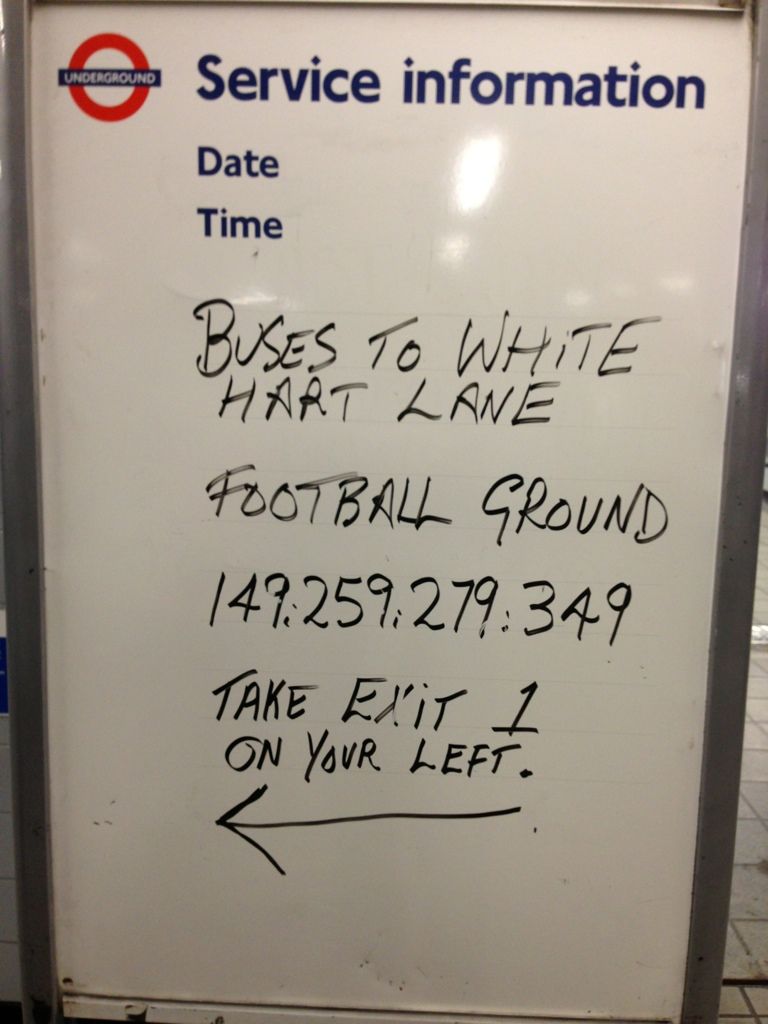 UNDERGROUND
Service information
Date
Time
BUSES TO WHiTE
HART LANE
FOOTBALL GROUND
149:259:279:349
TAKE EXiT 1
ON YOUR LEFT.